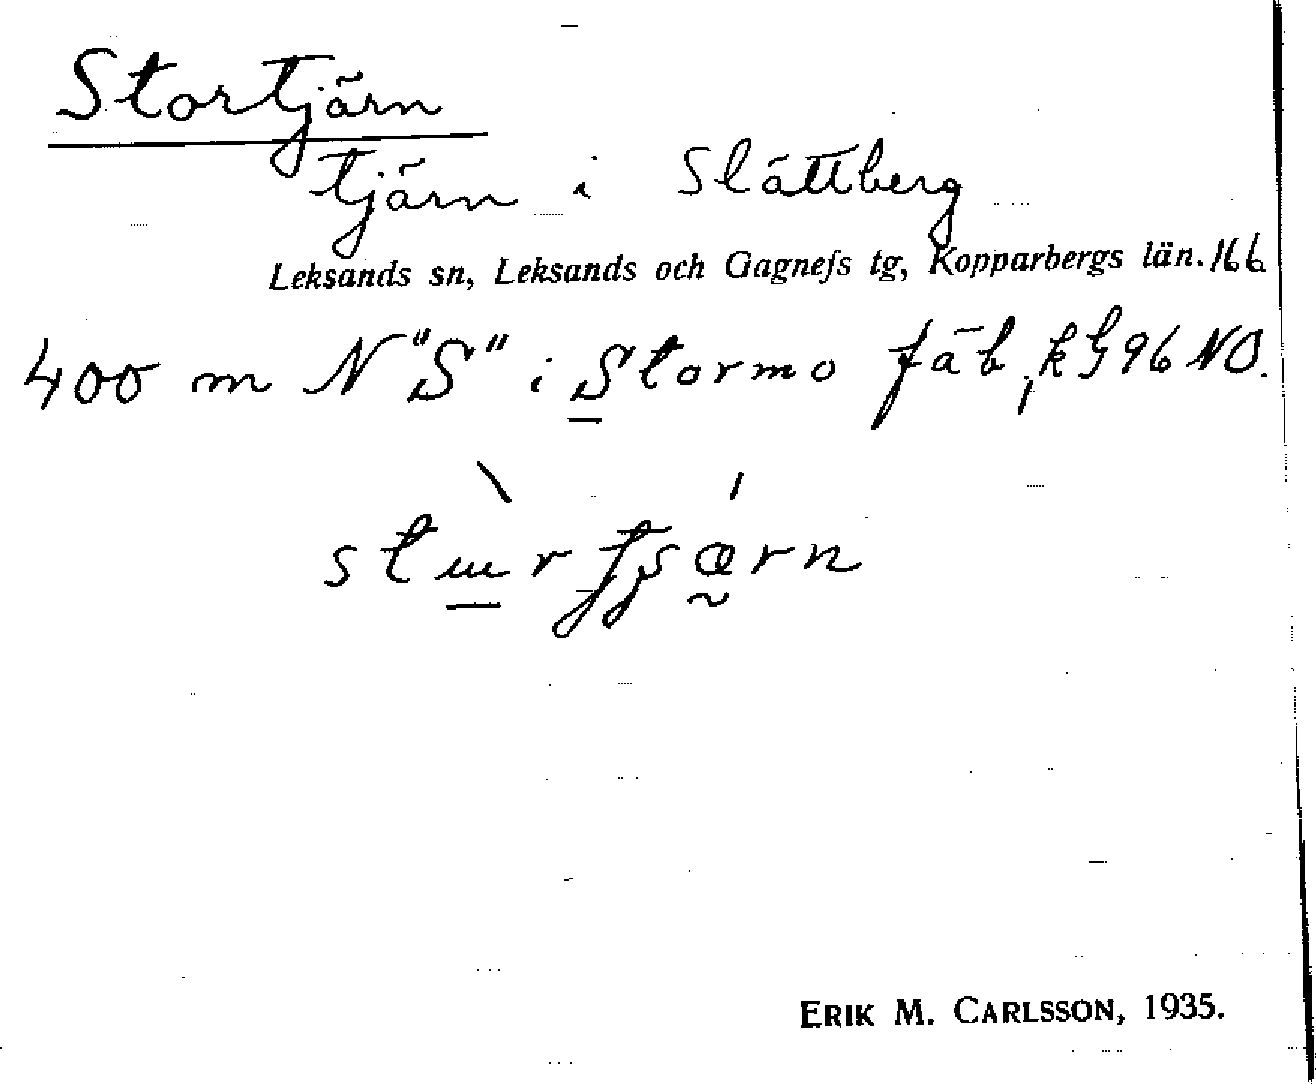 Stortjärn
tjärn i Slättberg
Leksands sn, Leksands och Gagnefs tg, Kopparbergs län. 166
400 m N "S" i Stormo fäb, kG 96 NO.
ERIK M. CARLSSON, 1935.